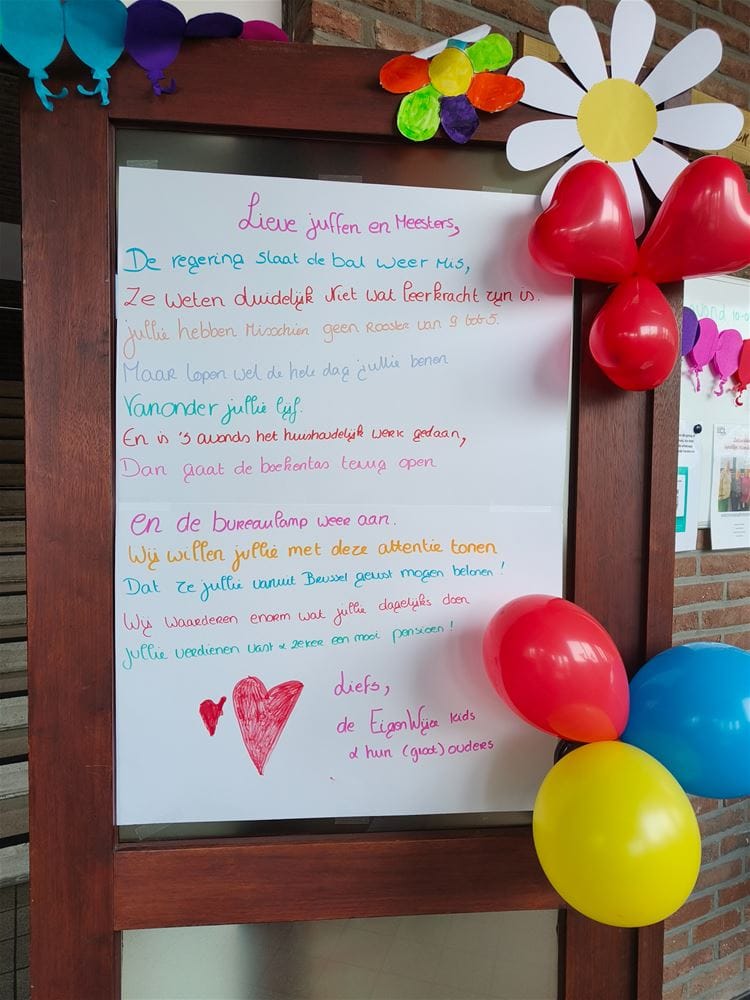 Lieve juffen en Meesters,
De regering slaat de bal weer mis,
Ze weten duidelijk Niet wat leerkracht zijn is.
jullie hebben Misschien geen Rooster van 9 tot 5.
Maar lopen wel de hele dag jullie benen
Vanonder jullie lijf.
En is 's avonds het huishoudelijk werk gedaan,
Dan gaat de boekentas terug open
en de bureaulamp weer aan.
Wij willen jullie met deze attentie tonen
Dat ze jullie vanuit Brussel gerust mogen belonen!
Wij waarderen enorm wat jullie dagelijks doen
jullie verdienen vast & zeker een mooi pensioen!
Liefs,
de EigenWijze kids
& hun (groot)ouders